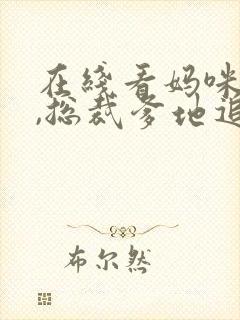 在线看妈咪
,总裁爹地追
布尔然